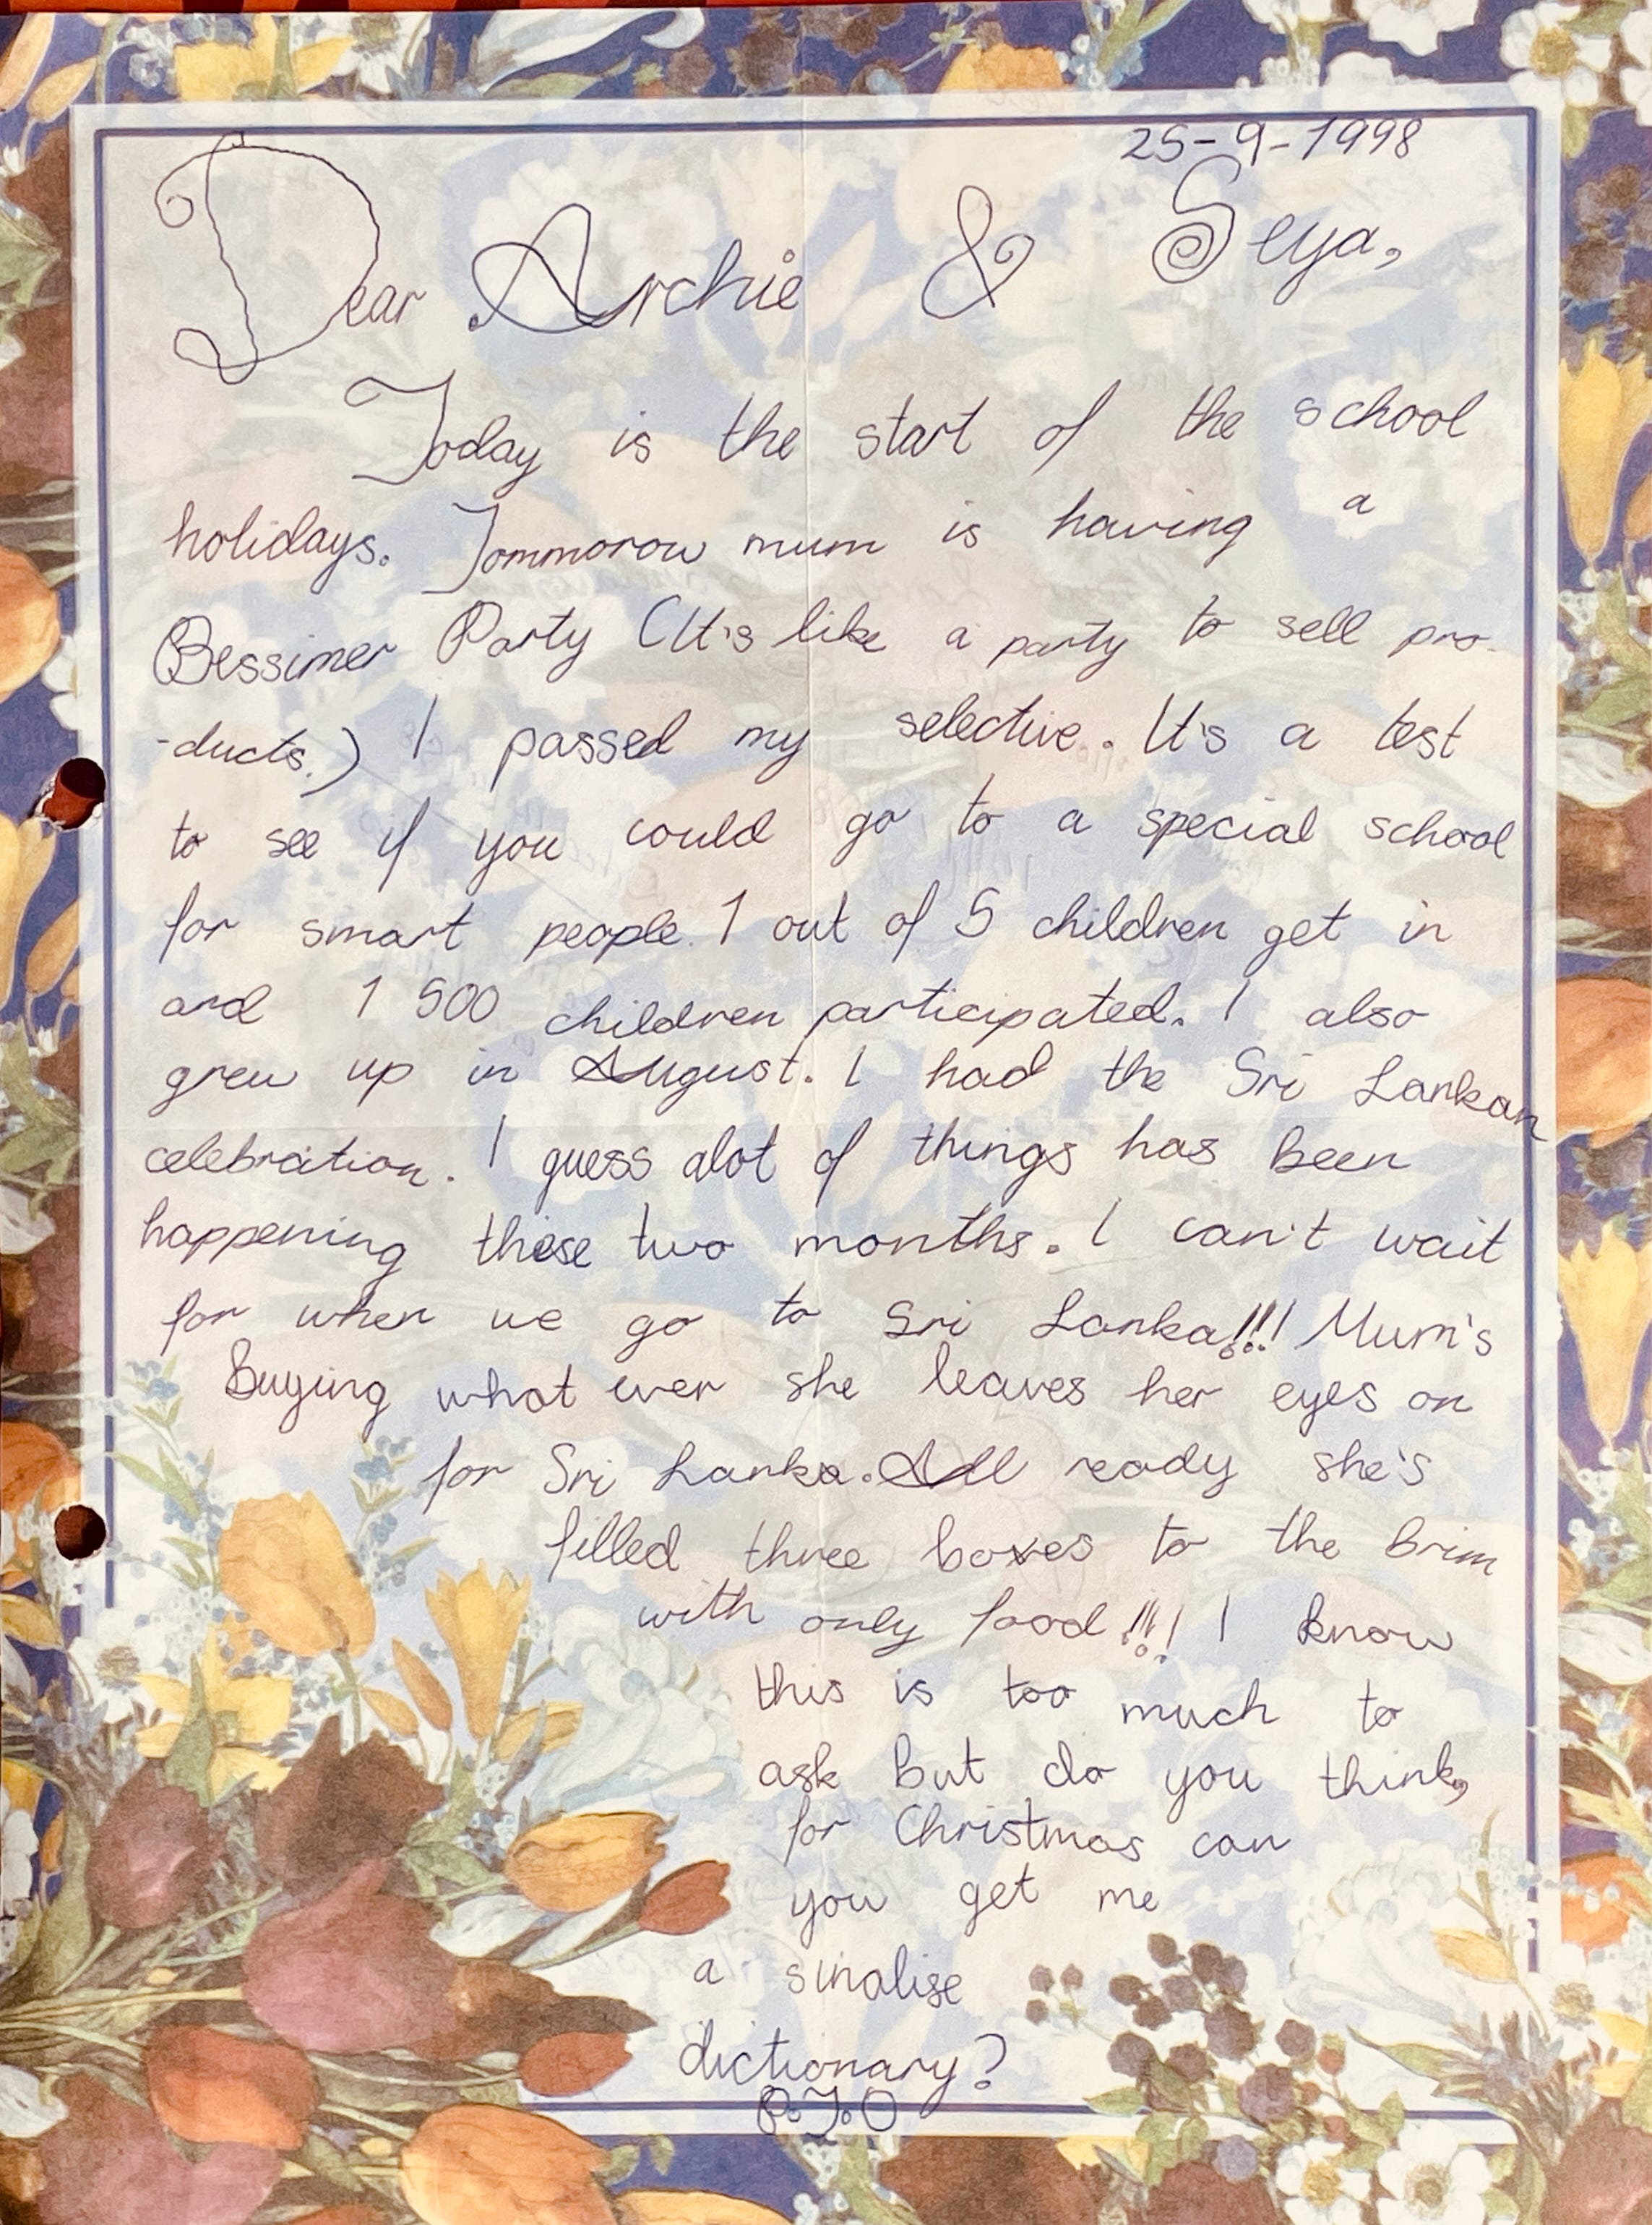 25-9-1998
Dear Archie & Seya,
Today is the start of the school
holidays. Tommorow mum is having a
Bessimer Party (It's like a party to sell pro-
-ducts.) I passed my selective. It's a test
to see if you could go to a special school
for smart people. 1 out of 5 children get in
and 1 500 children participated. I also
grew up in August. I had the Sri Lankan
celebration. I guess alot of things has been
happening these two months. I can't wait
for when we go to Sri Lanka!!! Mum's
buying what ever she leaves her eyes on
for Sri Lanka. All ready she's
filled three boxes to the brim
with only food!!! I know
this is too much to
ask but do you think,
for Christmas can
you get me
a sinalise
dictionary?
P.T.O